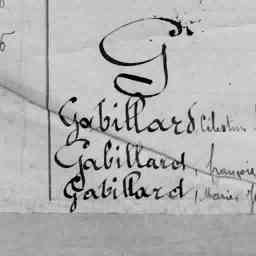 G
Gabillard, Célestin
Gabillard, françois
Gabillard, Marie